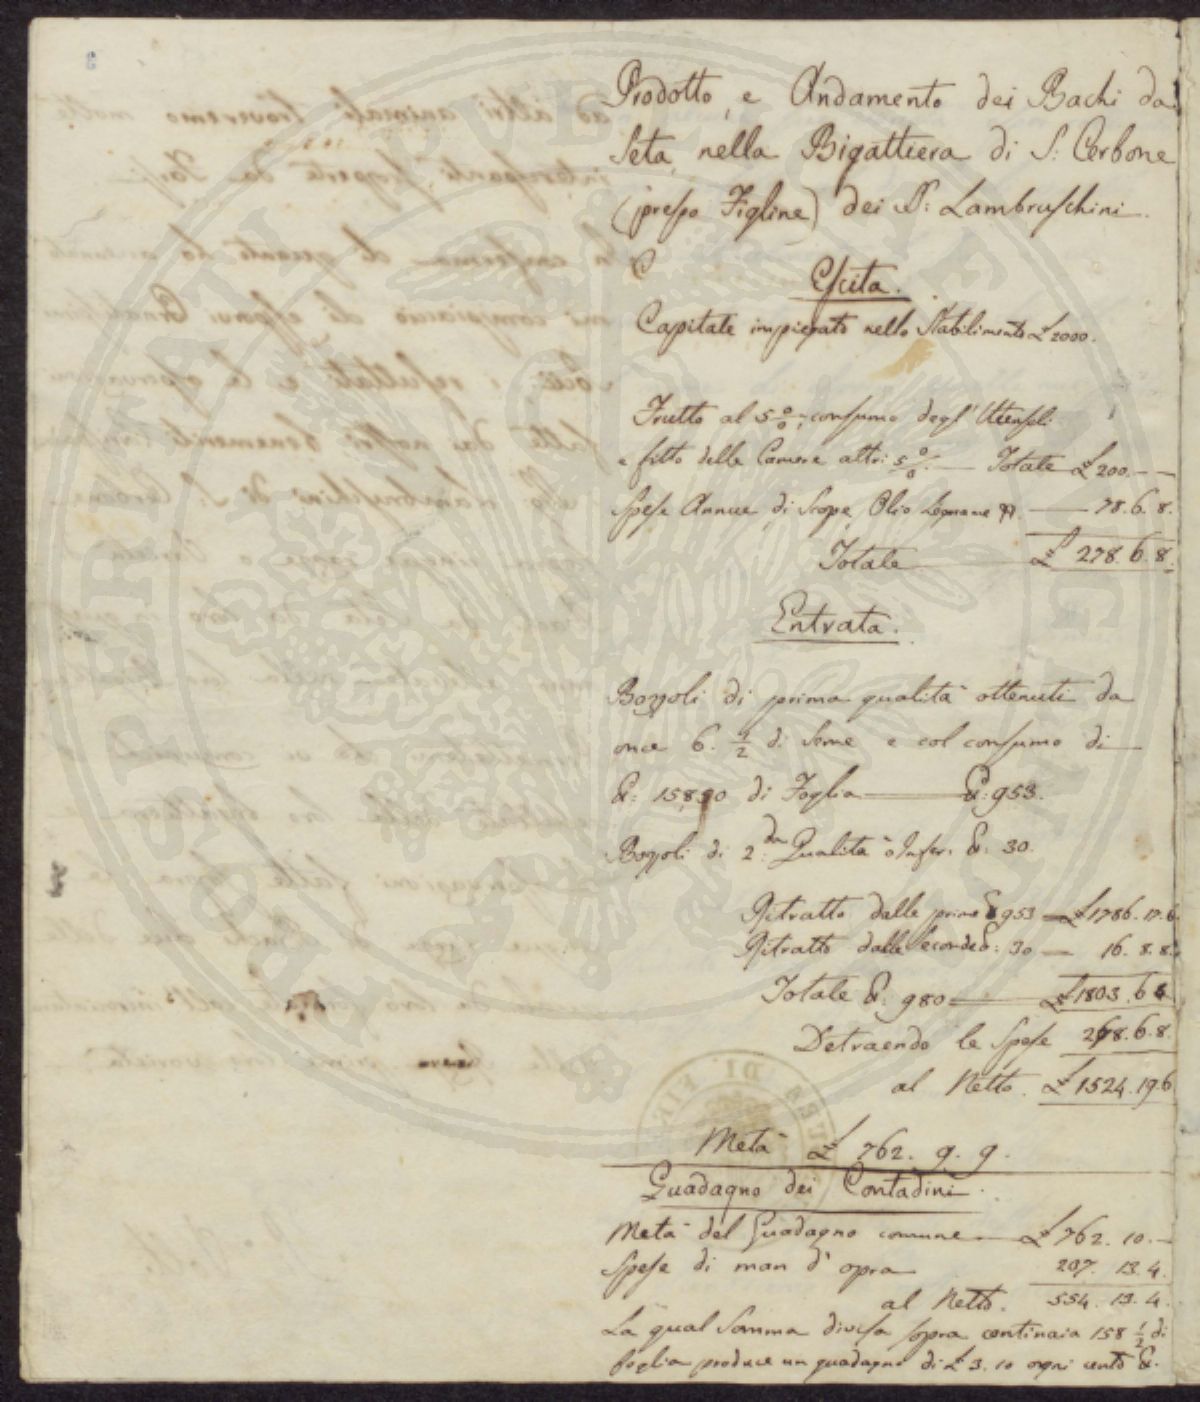 Prodotto, e Andamento dei Bachi da
Seta nella Bigattiera di S: Cerbone
(presso Figline) dei S.ri Lambruschini.
Escita.
Capitale impiegato nello Stabilimento £ 2000.
Frutto al 5 %; consumo degl' Utensili
e fitto delle Camere altri 5 %. — Totale £ 200. —
Spese Annue di Scope, Olio Legname — 78. 6. 8.
Totale — £ 278. 6. 8.
Entrata.
Bozzoli di prima qualità ottenuti da
once 6. 1/2 di Seme e col consumo di
℔: 15890 di Foglia — ℔: 953.
Bozzoli di 2.da Qualità o Infer. ℔: 30.
Ritratto dalle prime ℔ 953 — £ 1786. 17. 6
Ritratto dalle seconde ℔: 30 — 16. 8. 8.
Totale ℔: 980 — £ 1803. 6 4
Detraendo le Spese 278. 6. 8.
al Netto. £ 1524. 19. 6
Metà £ 762. 9. 9.
Guadagno dei Contadini.
Metà del Guadagno comune — £ 762. 10. —
Spese di man d' opra 207. 13. 4.
al Netto. 554. 13. 4.
La qual Somma divisa sopra centinaia 158 1/2 di
foglia produce un guadagno di £ 3. 10 ogni cento ℔.